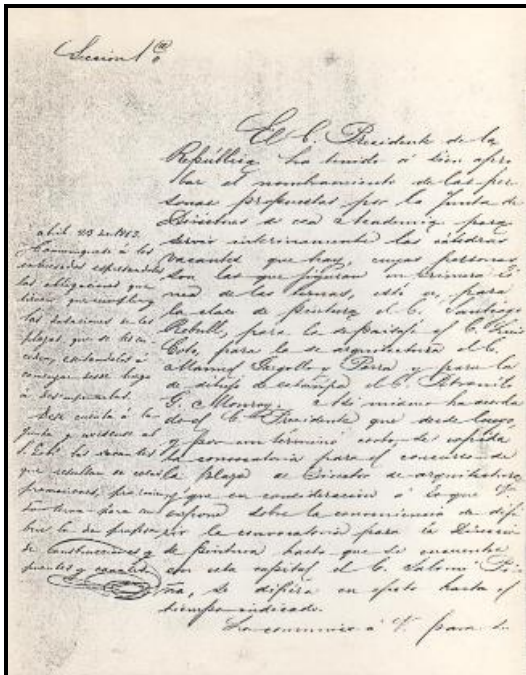 Seccion 1ª
El C. Presidente de la
República ha tenido á bien apro
bar el nombramiento de las per
sonas propuestas por la Junta de
Directores de esa Academia para
servir interinamente las cátedras
vacantes que hay, cuyas personas
son las que figuran en primera lí
nea de las ternas, esto es, para
la clase de pintura el C. Santiago
Rebull, para la de paisaje el C. Luis
Coto, para la de arquitectura el C.
Manuel Gargollo y Parra y para la
de dibujo de estampa el C. Petronilo
G. Monroy. Asi mismo ha acorda
do el C. Presidente que desde luego
y por un término corto, se espida
la convocatoria para el concurso de
la plaza de Director de arquitectura
y que en consideración á lo que V.
expone sobre la conveniencia de dife
rir la convocatoria para la Direccion
de pintura hasta que se encuentre
en esta capital el C. Salomé Pi
ña, se difiera en efecto hasta el
tiempo indicado.
Lo comunico á V. para
abril 23 de 1863.
Comuníquese á los
las obligaciones que
tienen que cumplir y
las dotaciones de las
plazas que se les
Dése cuenta á la
Junta
de construcciones y
puentes y canales